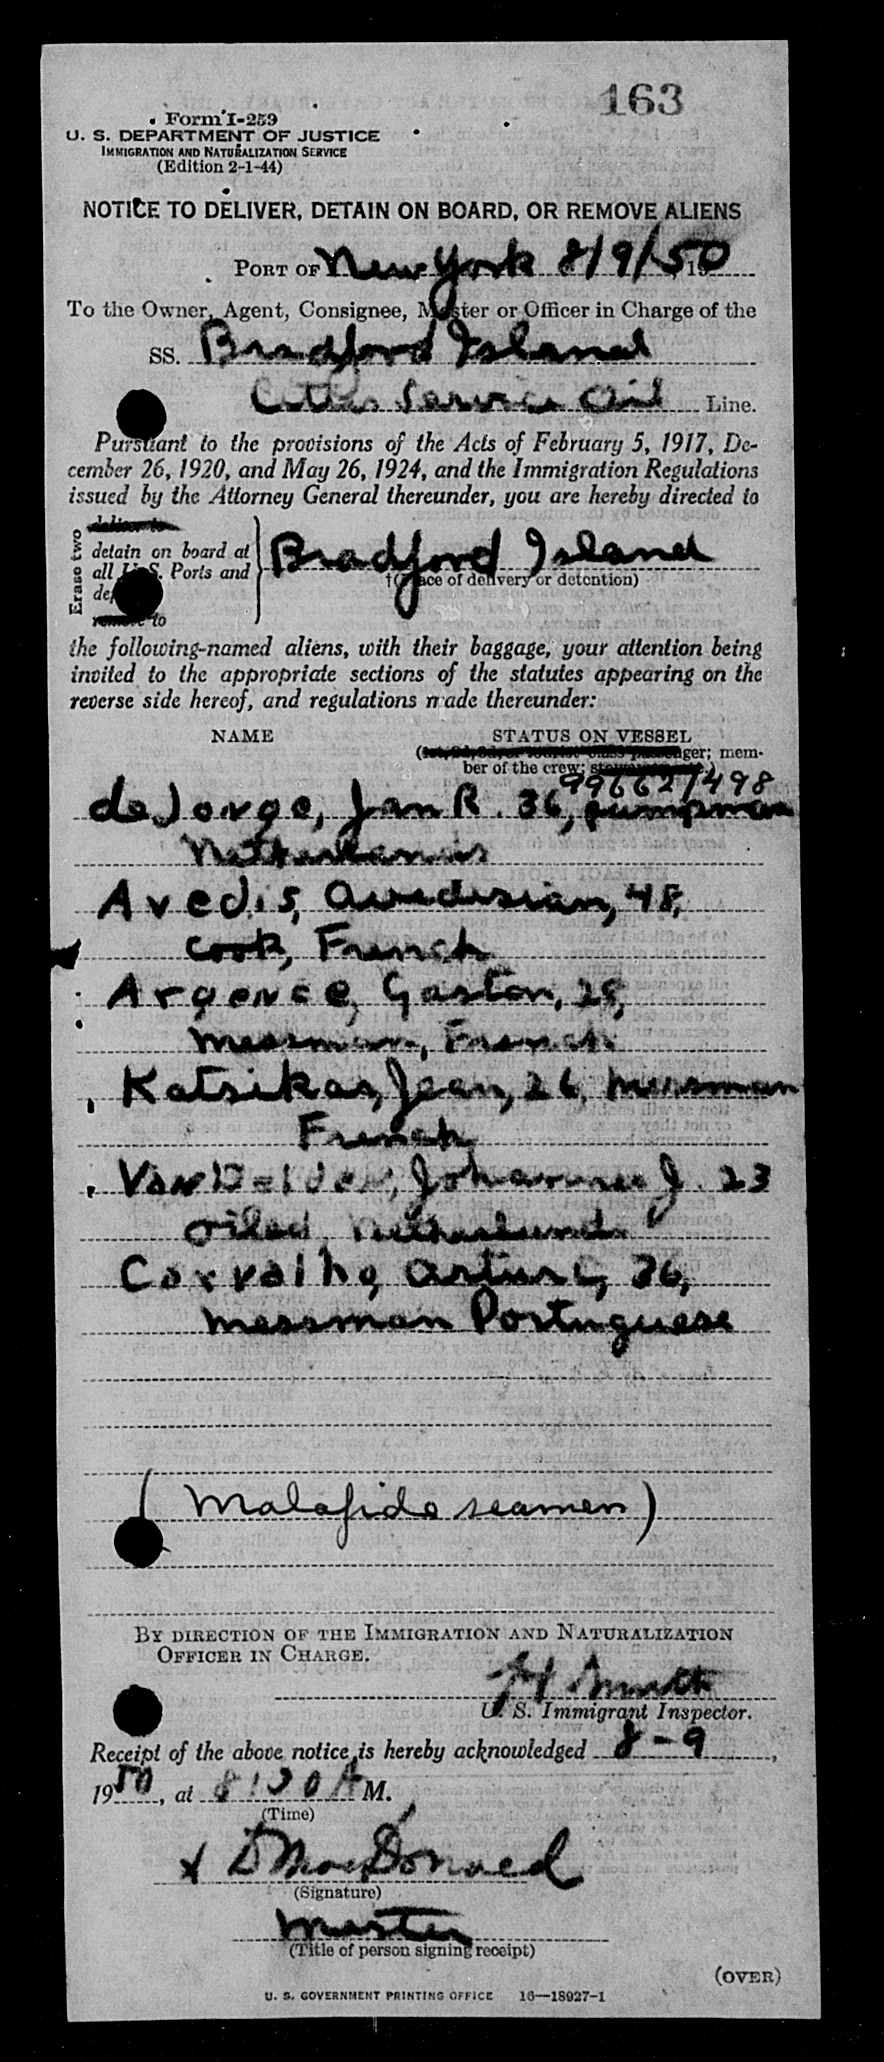 163
Form I-259
U. S. DEPARTMENT OF JUSTICE
IMMIGRATION AND NATURALIZATION SERVICE
(Edition 2-1-44)
NOTICE TO DELIVER, DETAIN ON BOARD, OR REMOVE ALIENS
PORT OF New York 8/9/50, 19
To the Owner, Agent, Consignee, Master or Officer in Charge of the
SS. Bradford Island
Cities Service Oil Line.
Pursuant to the provisions of the Acts of February 5, 1917, De-
cember 26, 1920, and May 26, 1924, and the Immigration Regulations
issued by the Attorney General thereunder, you are hereby directed to
Erase two
deliver to
detain on board at
all U. S. Ports and
remove to
Bradford Island
†(Place of delivery or detention)
the following-named aliens, with their baggage, your attention being
invited to the appropriate sections of the statutes appearing on the
reverse side hereof, and regulations made thereunder:
NAME STATUS ON VESSEL
passenger; mem-
ber of the crew;
996627498
de Jorge, Jan R. 36, pumpman
Netherlands
Avedis, Awedisian, 48,
cook, French
Argence, Gaston, 28,
messman, French
Katsikas, Jean, 26, messman
French
Van Delden, Johannes J. 23
Netherlands
Carvalho, Artur C, 36,
messman Portuguese
(Malafide seamen)
BY DIRECTION OF THE IMMIGRATION AND NATURALIZATION
OFFICER IN CHARGE.
Smith
U. S. Immigrant Inspector.
Receipt of the above notice is hereby acknowledged 8-9,
1950, at A M.
(Time)
x D MacDonald
(Signature)
Master
(Title of person signing receipt)
(OVER)
U. S. GOVERNMENT PRINTING OFFICE 16—18927-1